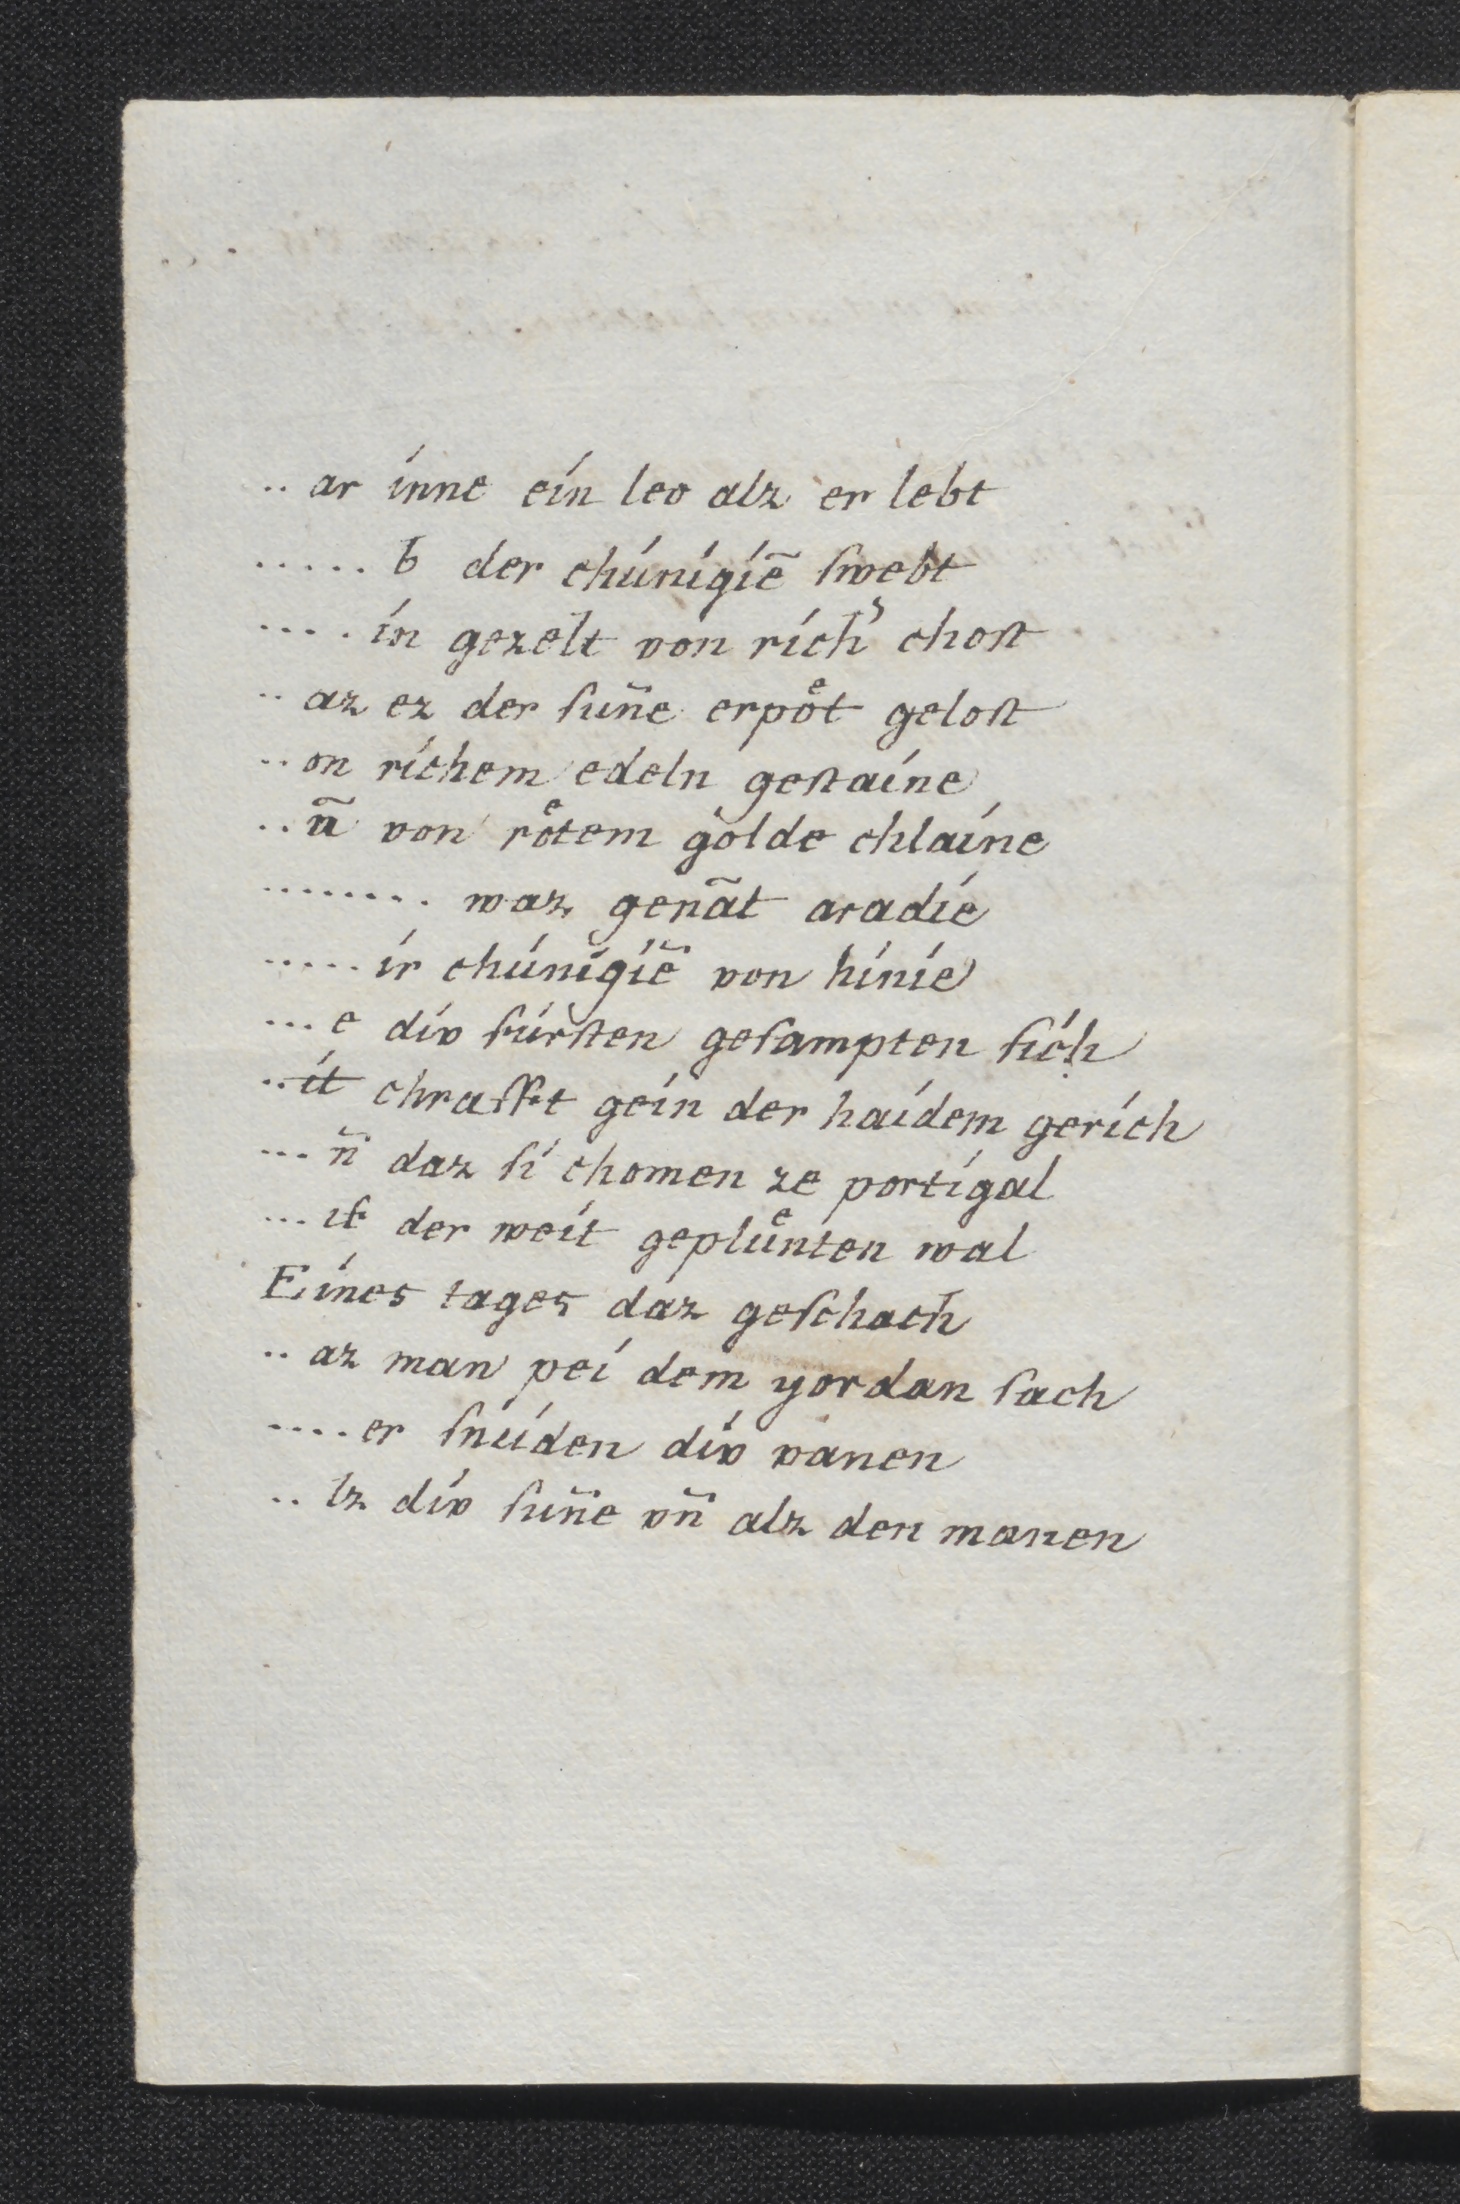 .. ar ínne eín leo alz er lebt
..... b der chúnígíē ſwebt
.... ín gezelt von rích᾽ choſt
.. az ez der ſun̄e erpoͤt geloſt
.. on ríchem edeln geſtaíne
.. n̄ von roͤtem golde chlaíne
........ waz genāt aradíe
..... ír chúnígíē von híníe
... e dív fúrſten geſampten ſích
.. ít chrafft geín der haídem gerích
... n̄ daz ſí chomen ze portígal
... uf der weít gepluͤnten wal
Eínes tages daz geſchach
.. az man peí dem yordan ſach
.... er ſníiden dív vanen
.. lz dív ſun̄e vn̄ alz den manen